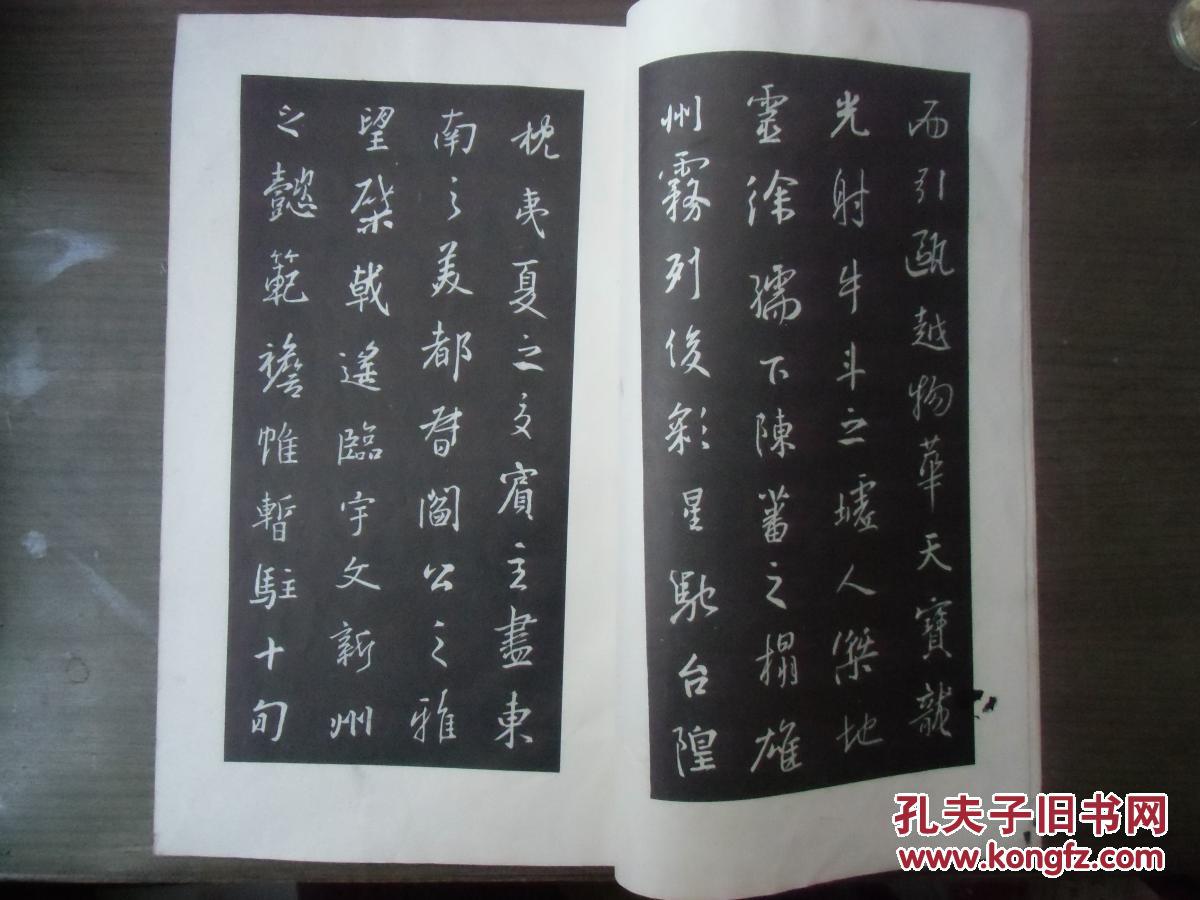 而引甌越物華天寶龍
光射牛斗之墟人傑地
靈徐孺下陳蕃之榻雄
州霧列俊彩星馳台隍
枕夷夏之交賓主盡東
南之美都督閻公之雅
望棨戟遙臨宇文新州
之懿範襜帷暫駐十旬
孔夫子旧书网
www.kongfz.com